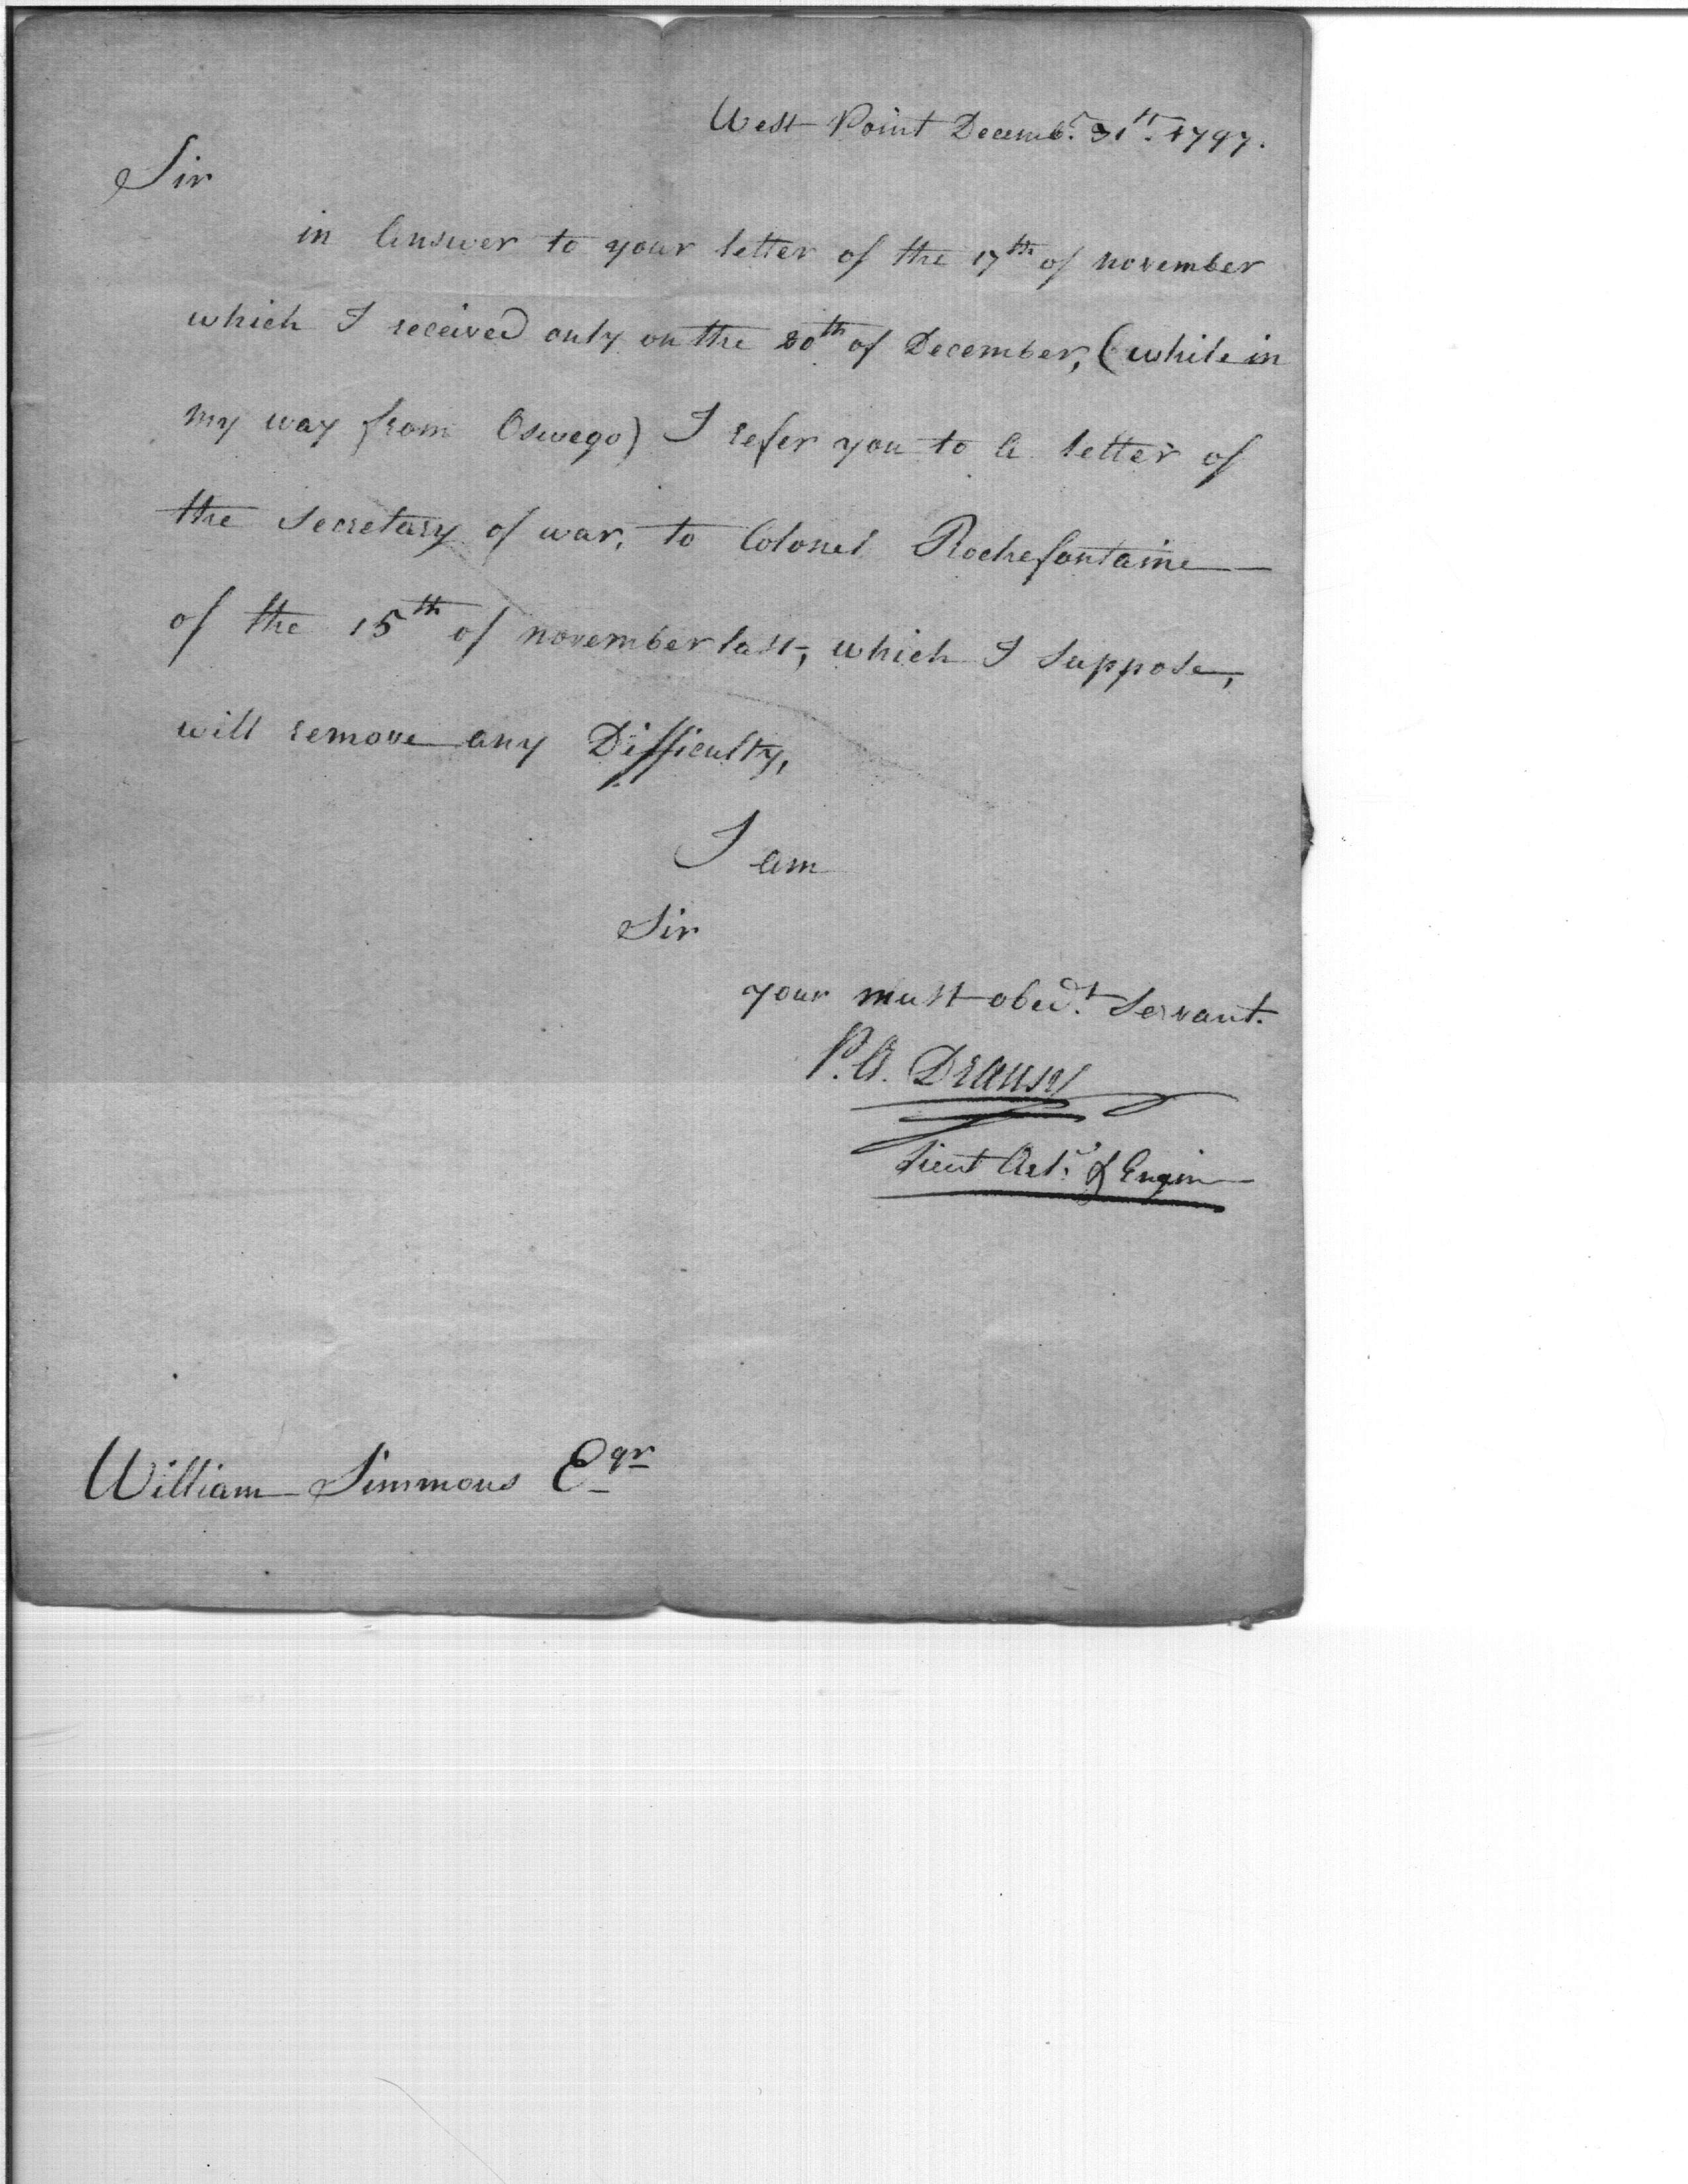 West Point Decemb.r 31st. 1797.
Sir
in answer to your letter of the 17th of november
which I received only on the 20th of December, (while in
my way from Oswego) I refer you to a letter of
the Secretary of war, to Colonel Rochefontaine
of the 15th of november last, which I suppose,
will remove any Difficulty,
I am
Sir
your must obed.t Servant.
P.A. Dransy
Lieut Art.y & Engin
William Simmons Eqr